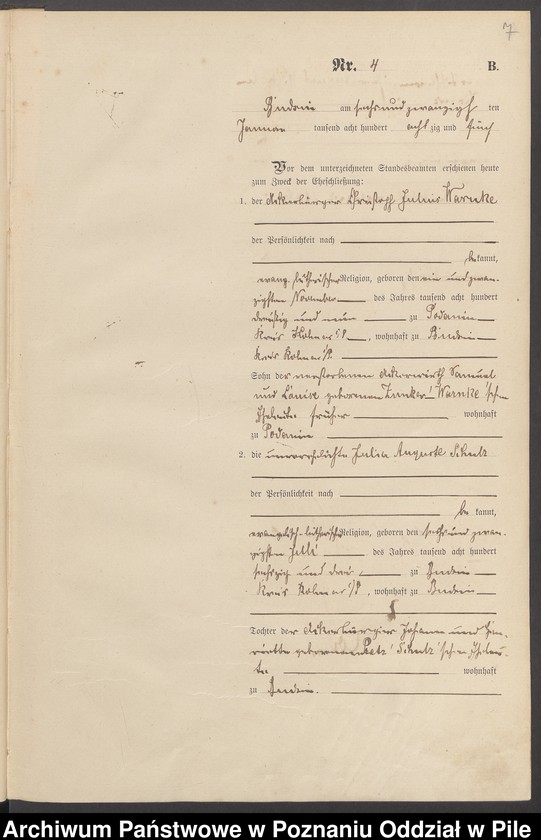 7
Nr. 4 B.
Budsin am sechs und zwanzigsten
Januar tausend acht hundert achtzig und fünf
Vor dem unterzeichneten Standesbeamten erschienen heute
zum Zweck der Eheschließung:
1. der Ackerbürger Christoph Julius Warnke
der Persönlichkeit nach
bekannt,
evang. lutherischer Religion, geboren den ein und zwan-
zigsten November des Jahres tausend acht hundert
dreißig und neun zu Podanin
Kreis Kolmar i/P, wohnhaft zu Budsin
Kreis Kolmar i/P.
Sohn der verstorbenen Ackerwirth Samuel
und Louise geborenen Warnke'schen
Eheleute früher wohnhaft
zu Podanin
2. die unverehelichte Julia Auguste Schulz
der Persönlichkeit nach
bekannt,
evangelisch-lutherischer Religion, geboren den sechs und zwan-
zigsten Juli des Jahres tausend acht hundert
sechszig und drei zu Budsin
Kreis Kolmar i/P, wohnhaft zu Budsin
Tochter der Ackerbürger Johann und
geborenen Schulz'schen Eheleu-
te wohnhaft
zu Budsin.
Archiwum Państwowe w Poznaniu Oddział w Pile